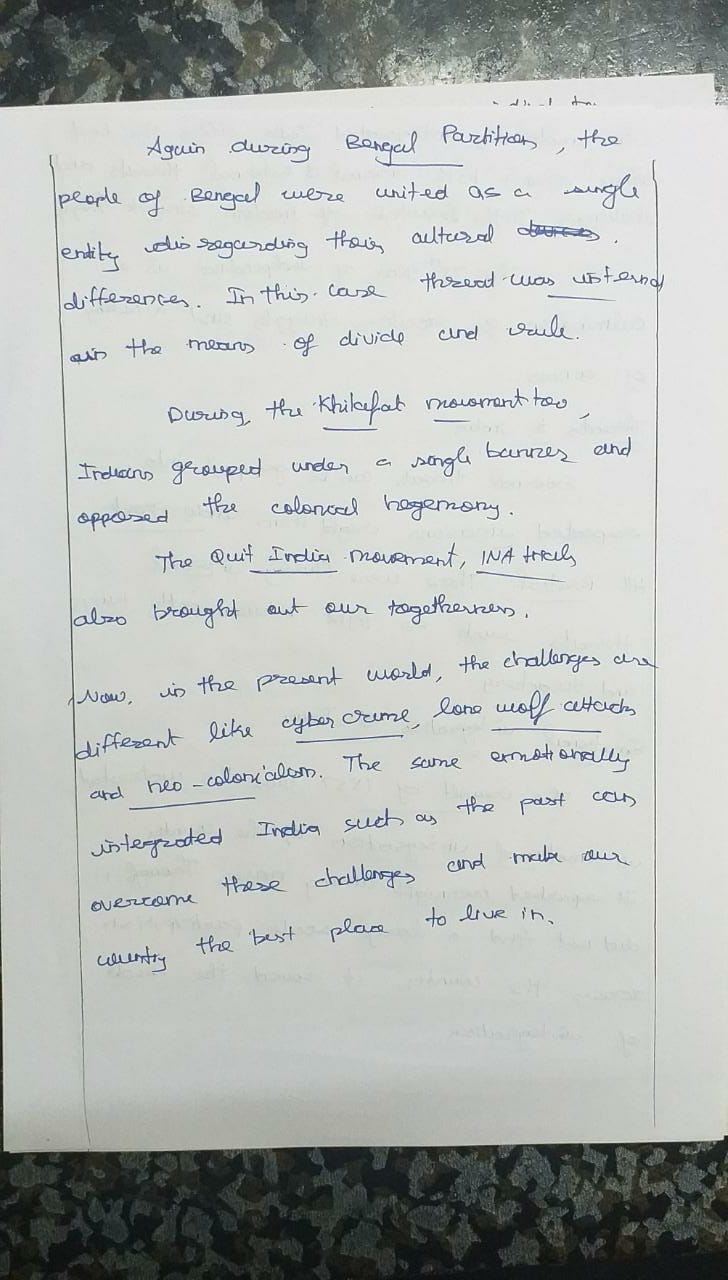 Again during Bengal Partition, the
people of Bengal were united as a single
entity disregarding their cultural
differences. In this case thread was internal
in the means of divide and rule.
During the Khilafat movement too,
Indians grouped under a single banner and
opposed the colonial hegemony.
The Quit India movement, INA trials
also brought out our togetherness.
Now, in the present world, the challenges are
different like cyber crime, lone wolf attacks
and neo-colonialism. The same emotionally
integrated India such as the past can
overcome these challenges and make our
country the best place to live in.